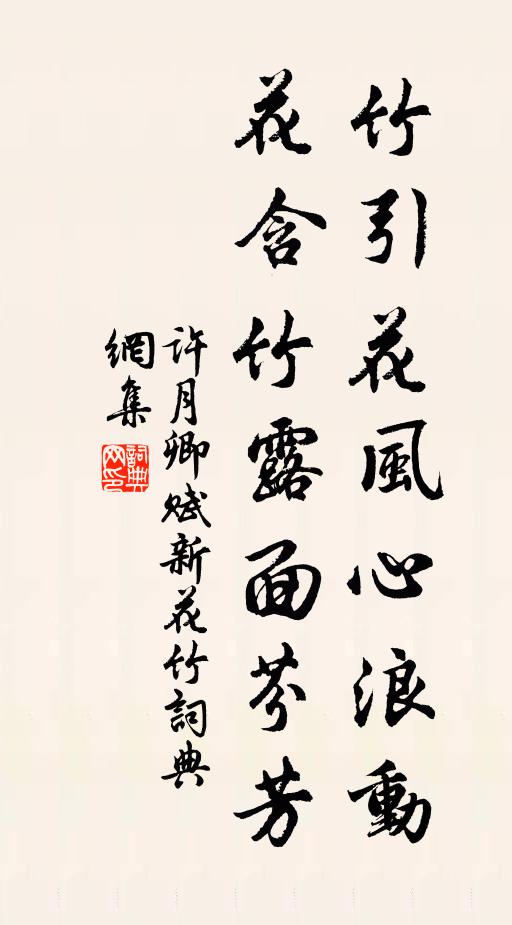 竹引花風心浪動
花含竹露面芬芳
許月卿賦新花竹詞典
網集
詞典網印